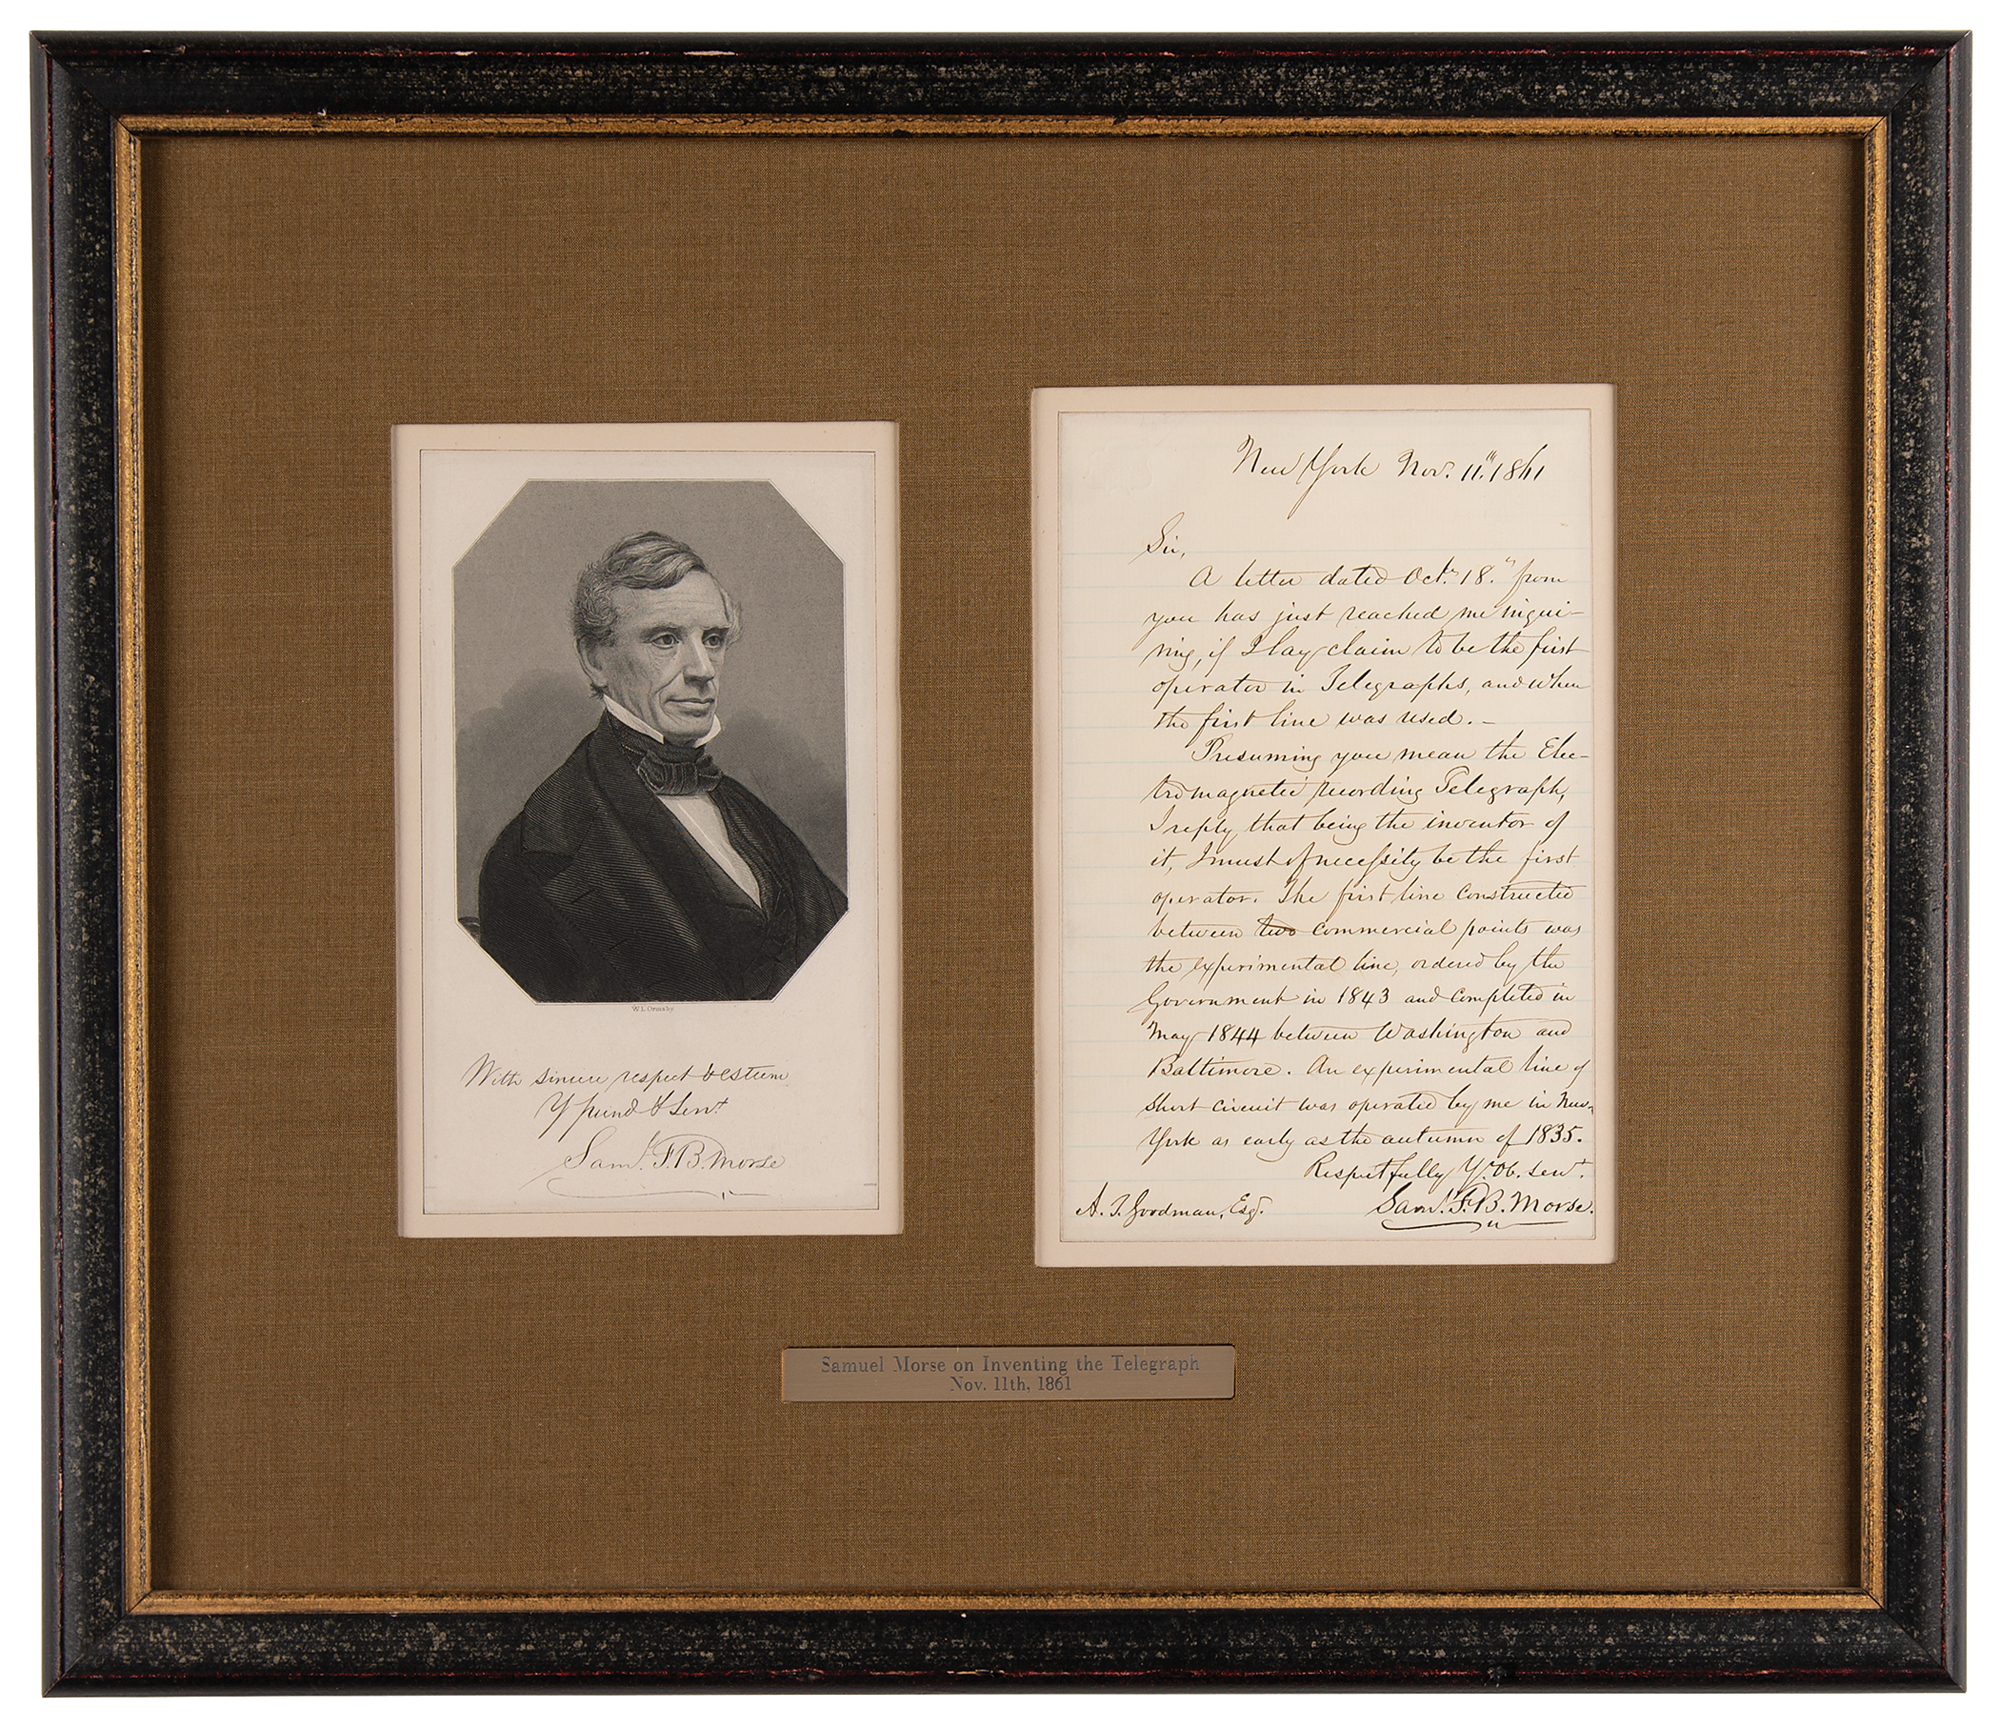 W. L. Ormsby
With sincere respect & esteem
Yr friend & Servt
Saml. F. B. Morse
New York Nov. 11th 1861
Sir,
A letter dated Octr. 18th from
you has just reached me inqui-
ring, if I lay claim to be the first
operator in Telegraphs, and when
the first line was used. —
Presuming you mean the Elec-
tromagnetic recording Telegraph,
I reply, that being the inventor of
it, I must of necessity be the first
operator. The first line constructed
between two commercial points was
the experimental line, ordered by the
Government in 1843 and completed in
May 1844 between Washington and
Baltimore. An experimental line of
short circuit was operated by me in New-
York as early as the autumn of 1835.
Respectfully Yr. Ob. Servt.
A. T. Goodman, Esq. Saml. F. B. Morse.
Samuel Morse on Inventing the Telegraph
Nov. 11th, 1861